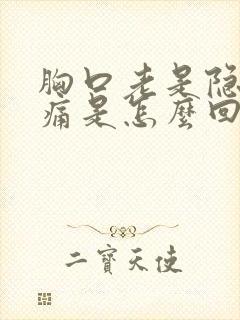 胸口老是隐
痛是怎麼回
二寶天使